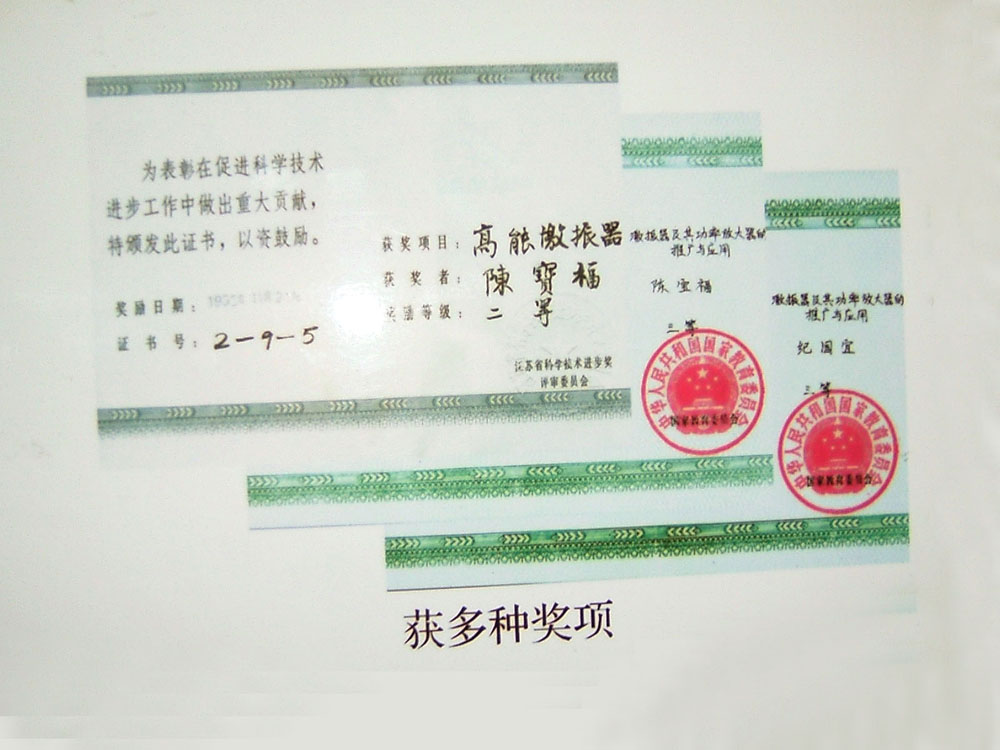 为表彰在促进科学技术
进步工作中做出重大贡献，
特颁发此证书，以资鼓励。
奖励日期：
证书号：2-9-5
获奖项目：高能激振器
获奖者：陳寶福
奖励等级：二等
江苏省科学技术进步奖
评审委员会
激振器及其功率放大器的
推广与应用
陈宝福
三等
中华人民共和国国家教育委员会
国家教育委员会
激振器及其功率放大器的
推广与应用
纪国宜
三等
中华人民共和国国家教育委员会
国家教育委员会
获多种奖项